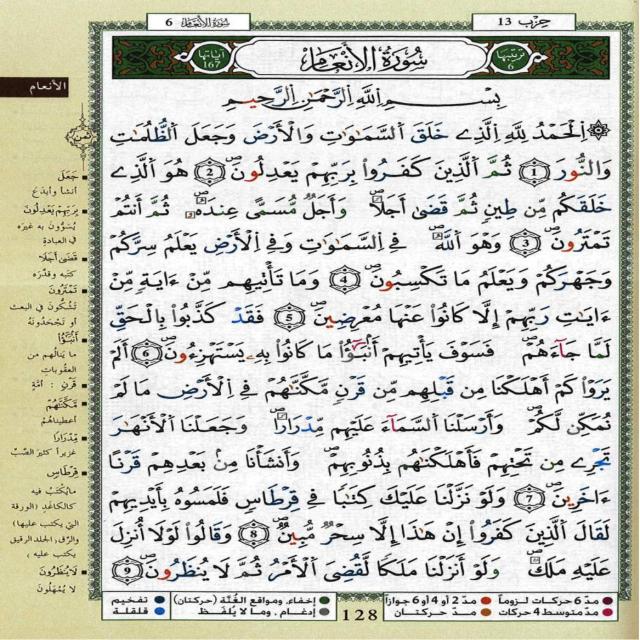 سورة الأنعام 6
حزب 13
آياتها 167
سُورَةُ الأَنْعَامِ
ترتيبها 6
بِسْمِ اللَّهِ الرَّحْمَٰنِ الرَّحِيمِ
الأنعام
ثمن
۞ اَلْحَمْدُ لِلَّهِ الَّذِي خَلَقَ السَّمَٰوَٰتِ وَالْأَرْضَ وَجَعَلَ الظُّلُمَٰتِ
وَالنُّورَ (1) ثُمَّ الَّذِينَ كَفَرُوا بِرَبِّهِمْ يَعْدِلُونَ (2) هُوَ الَّذِي
خَلَقَكُم مِّن طِينٍ ثُمَّ قَضَىٰ أَجَلًا وَأَجَلٌ مُّسَمًّى عِندَهُ ثُمَّ أَنتُمْ
تَمْتَرُونَ (3) وَهُوَ اللَّهُ فِي السَّمَٰوَٰتِ وَفِي الْأَرْضِ يَعْلَمُ سِرَّكُمْ
وَجَهْرَكُمْ وَيَعْلَمُ مَا تَكْسِبُونَ (4) وَمَا تَأْتِيهِم مِّنْ ءَايَةٍ مِّنْ
ءَايَٰتِ رَبِّهِمْ إِلَّا كَانُوا عَنْهَا مُعْرِضِينَ (5) فَقَدْ كَذَّبُوا بِالْحَقِّ
لَمَّا جَآءَهُمْ فَسَوْفَ يَأْتِيهِمْ أَنۢبَٰٓؤُا مَا كَانُوا بِهِ يَسْتَهْزِءُونَ (6) أَلَمْ
يَرَوْا كَمْ أَهْلَكْنَا مِن قَبْلِهِم مِّن قَرْنٍ مَّكَّنَّٰهُمْ فِي الْأَرْضِ مَا لَمْ
نُمَكِّن لَّكُمْ وَأَرْسَلْنَا السَّمَآءَ عَلَيْهِم مِّدْرَارًا وَجَعَلْنَا الْأَنْهَٰرَ
تَجْرِي مِن تَحْتِهِمْ فَأَهْلَكْنَٰهُم بِذُنُوبِهِمْ وَأَنشَأْنَا مِنۢ بَعْدِهِمْ قَرْنًا
ءَاخَرِينَ (7) وَلَوْ نَزَّلْنَا عَلَيْكَ كِتَٰبًا فِي قِرْطَاسٍ فَلَمَسُوهُ بِأَيْدِيهِمْ
لَقَالَ الَّذِينَ كَفَرُوا إِنْ هَٰذَا إِلَّا سِحْرٌ مُّبِينٌ (8) وَقَالُوا لَوْلَا أُنزِلَ
عَلَيْهِ مَلَكٌ وَلَوْ أَنزَلْنَا مَلَكًا لَّقُضِيَ الْأَمْرُ ثُمَّ لَا يُنظَرُونَ (9)
جَعَلَ
أنشأ وأبدَعَ
بِرَبِّهِمْ يَعْدِلُونَ
يُسَوُّونَ به غيرَه
في العبادةِ
قَضَىٰ أَجَلًا
كتبه وقدّره
تَمْتَرُونَ
تَشُكّونَ في البعث
أو تجحَدُونَهُ
أَنۢبَٰٓؤُا
ما يَنالُهم من
العقوباتِ
قَرْنٍ : أُمّةٍ
مَّكَّنَّٰهُمْ
أعطيناهُمْ
مِّدْرَارًا
غزيراً كثيرَ الصَّبِّ
قِرْطَاسٍ
ما يُكتَبُ فيه
كالكاغَدِ (الورقة
التي يكتب عليها)
والرَّقِّ (الجلد الرقيق
يكتب عليه)
لَا يُنظَرُونَ
لا يُمْهَلُونَ
مدّ 6 حركات لزوماً
مدّ 2 أو 4 أو 6 جوازاً
إخفاء، ومواقع الغُنَّة (حركتان)
تفخيم
مدّ متوسط 4 حركات
مدّ حركتان
128
إدغام، وما لا يُلفَظ
قلقلة